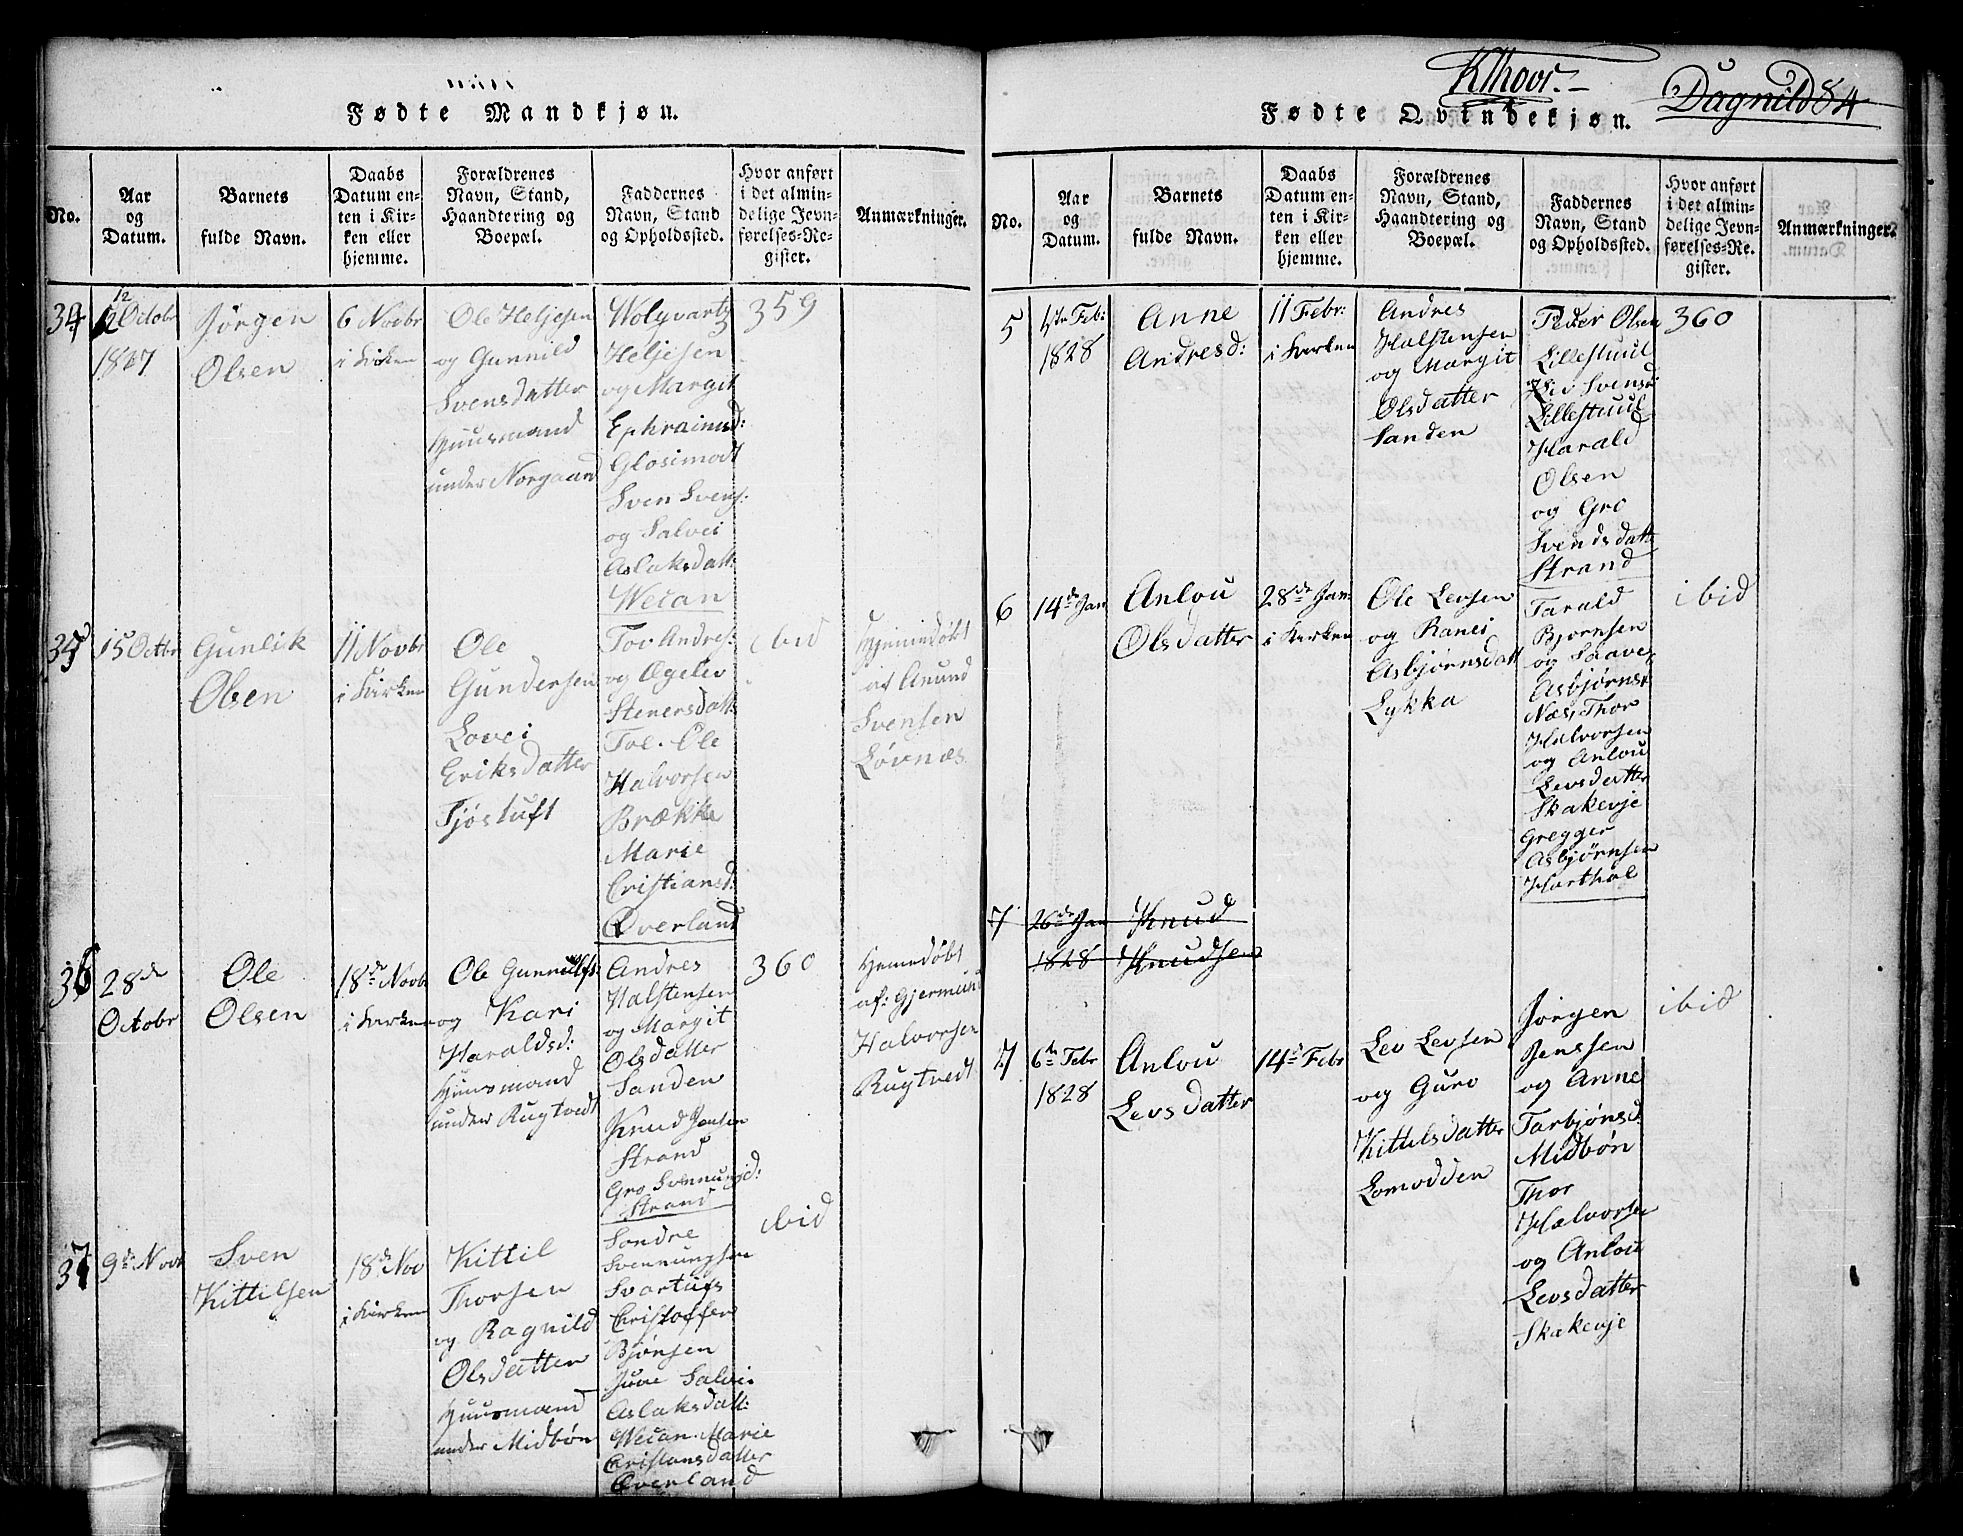 Fødte Mandkjøn.
No.
Aar
og
Datum.
Barnets
fulde Navn.
Daabs
Datum en-
ten i Kir-
ken eller
hjemme.
Forældrenes
Navn, Stand,
Haandtering og
Boepæl.
Faddernes
Navn, Stand
og Opholdssted.
Hvor anført
i det almin-
delige Jevn-
førelses-Re-
gister.
Anmærkninger.
34
12 Octobr
1827
Jörgen
Olsen
6 Novbr
i Kirken
Ole Heljesen
og Gunnild
Svensdatter
Huusmand
under Norgaard
Wolgvartz
Heljesen
og Margit
Ephraimsd:
Glosimodt
Sven Svens:
og Salvei
Aslaksdatt:
Wecan
359
35
15 Octbr
Gunlik
Olsen
11 Novbr
i Kirken
Ole
Gundersen
Lovei
Eriksdatter
Tjöstuft
Tov Andres:
og Ægeliv
Stenersdatt:
Toe. Ole
Halvorsen
Brække
Marie
Cristiansd:
Overland
ibid
Hjemmedöbt
af Anund
Svensen
Lövnæs
36
28de
Octobr
Ole
Olsen
18de Novb
i Kirken
Ole Gunnulfs:
og Kari
Haraldsd:
Huusmand
under Rugtvedt
Andres
Halstensen
og Margit
Olsdatter
Sanden
Knud Jansen
Strand
Gro Svennungd:
Strand
360
Hemedöbt
af: Gjermund
Halvorsen
Rugtvedt
37
9de Novr
Sven
Kittilsen
18de Nov
i Kirken
Kittil
Thorsen
og Ragnild
Olsdatter
Huusmand
under Midbön
Sondre
Svennungsen
Svartufs
Cristoffer
Björnsen
Juve Salvei
Aslaksdatt:
Wecan. Marie
Christansdatter
Overland
ibid
KThovr.
Dagnild 84
Fødte Qvindekjøn.
No.
Aar
og
Datum.
Barnets
fulde Navn.
Daabs
Datum en-
ten i Kir-
ken eller
hjemme.
Forældrenes
Navn, Stand,
Haandtering og
Boepæl.
Faddernes
Navn, Stand
og Opholdssted.
Hvor anført
i det almin-
delige Jevn-
førelses-Re-
gister.
Anmærkninger.
5
1ste Feb:
1828
Anne
Andresd:
11 Febr:
i Kirken
Andres
Halstensen
og Margit
Olsdatter
Sanden
Peder Olsen
Lillestuul
Liv Svensd
Lillestuul
Harald
Olsen
og Gro
Svendsdatt:
Strand
360
6
14de Jan
Anlou
Olsdatter
28de Jan:
i Kirken
Ole Levsen
og Ranei
Asbjörnsdatt
Lykka
Tarald
Bjornsen
og Saave
Asbjörnsd
Næs, Thor
Halvorsen
og Anlou
Levsdatter
Skakevje
Gregger
Asbjörnsen
Harthol
ibid
7
26de Jan
1828
Knud
Knudsen
7
6te Febr
1828
Anlou
Levsdatter
14de Febr
Lev Levsen
og Guro
Kittelsdatter
Lomodden
Jörgen
Jenssen
og Anne
Tarbjönsd:
Midbön
Thor
Halvorsen
og Anlou
Levsdatter
Skakevje
ibid